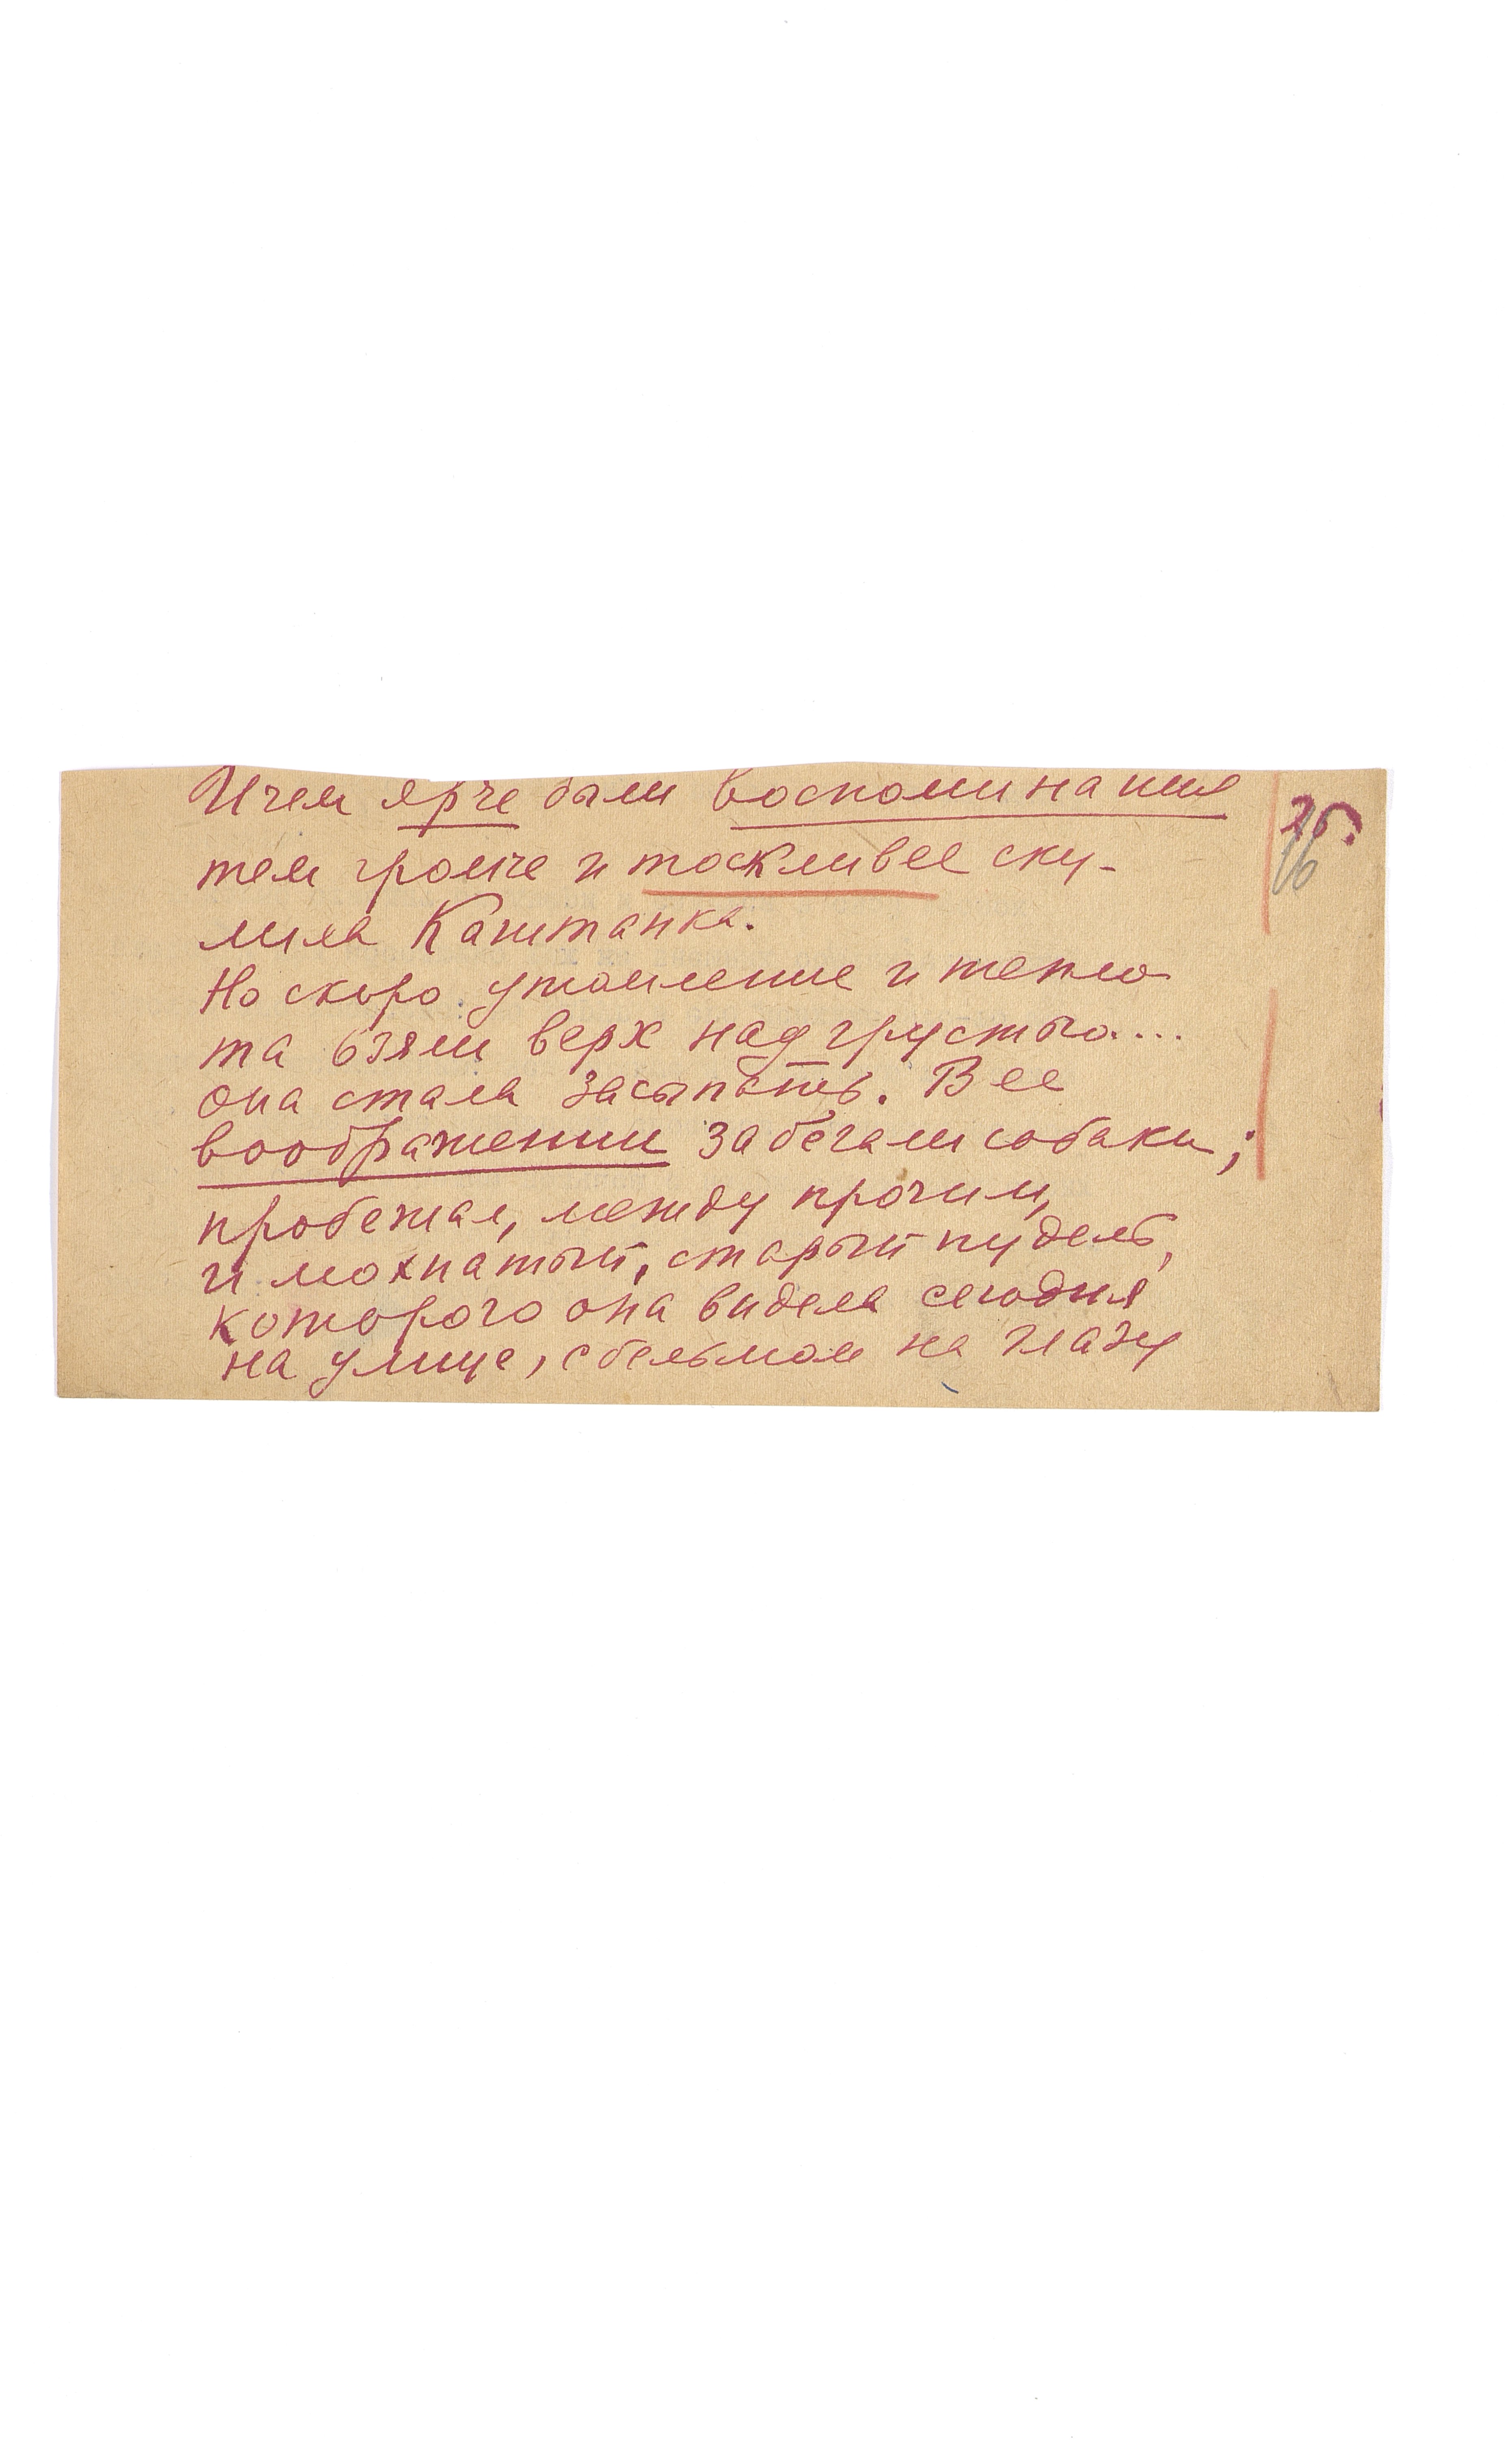 И чем ярче были воспоминания
тем громче и тоскливее ску-
лила Каштанка.
Но скоро утомление и тепло-
та взяли верх над грустью....
она стала засыпать. В ее
воображении забегали собаки;
пробежал, между прочим,
и мохнатый, старый пудель,
которого она видела сегодня
на улице, с бельмом на глазу
16